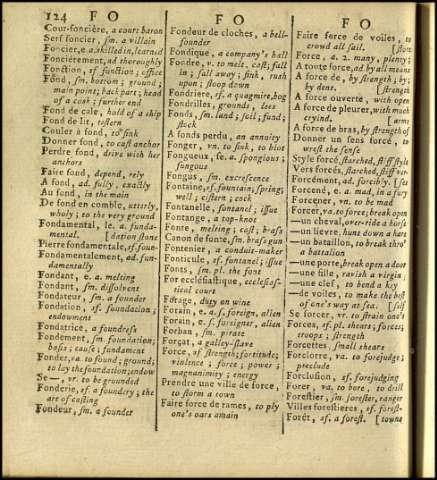 124 F O
F O
F O
Cour-foncière, a court baron
Serf foncier, sm. a villain
Foncier, e a. skilled in, learned
Foncièrement, ad thoroughly
Fonction, sf function; office
Fond, sm. bottom; ground;
main point; back part; head
of a cask; further end
Fond de cale, hold of a ship
Fond de lit, testern
Couler à fond, to sink
Donner fond, to cast anchor
Perdre fond, drive with her
anchors
Faire fond, depend, rely
A fond, ad. fully, exactly
Au fond, in the main
De fond en comble, utterly,
wholy; to the very ground
Fondamental, le. a. funda-
mental. [dation stone
Pierre fondamentale, sf. foun-
Fondamentalement, ad. fun-
damentally
Fondant, e a. melting
Fondant, sm. dissolvent
Fondateur, sm. a founder
Fondation, sf. foundation;
endowment
Fondatrice, a foundress
Fondement, sm. foundation;
basis; cause; fundament
Fonder, va. to found; ground;
to lay the foundation; endow
Se —, vr. to be grounded
Fonderie, sf. a foundery; the
art of casting
Fondeur, sm. a founder
Fondeur de cloches, a bell-
founder
Fondique, a company's hall
Fondre, v. to melt, cast; fall
in; fall away; sink, rush
upon; stoop down
Fondriere, sf. a quagmire, bog
Fondrilles, grounds, lees
Fonds, sm. land; soil; fund;
stock
A fonds perdu, an annuity
Fonger, vn. to sink, to blot
Fongueux, se. a. spongious;
fungous
Fongus, sm. excrescence
Fontaine, sf. fountain; spring;
well; cistern; cock
Fontanelle, fontanel; issue
Fontange, a top-knot
Fonte, melting; cast; brass
Canon de fonte, sm. brass gun
Fontenier, a conduit-maker
Fonticule, sf. fontanel; issue
Fonts, sm. pl. the font
For ecclésiastique, ecclesias-
tical court
Forage, duty on wine
Forain, e. a. s. foreign, alien
Forain, e. s. foreigner, alien
Forban, sm. pirate
Forçat, a galley-slave
Force, sf strength; fortitude;
violence; force; power;
magnanimity; energy
Prendre une ville de force,
to storm a town
Faire force de rames, to ply
one's oars amain
Faire force de voiles, to
crowd all sail. [store
Force, a. 2. many, plenty;
A toute force, ad by all means
A force de, by strength; by;
by dent. [strength
Force ouverte, with open
A force de pleurer, with much
cryind. [arms
A force de bras, by strength of
Donner un sens forcé, to
wrest the sense
Style forcé, starched, stiff style
Vers forcés, starched, stiff
Forcément, ad. forcibly. [ses
Forcené, e a. mad, in a fury
Forcener, vn. to be mad
Forcer, va. to force; break open
—un cheval, over-ride a horse
—un lievre, hunt down a hare
—un bataillon, to break thro'
a battalion
—une porte, break open a door
—une fille, ravish a virgin
—une clef, to bend a key
—de voiles, to make the best
of one's way at sea. [self
Se forcer, vr. to strain one's
Forces, sf. pl. shears; forces;
troops; strength
Forcettes, small shears
Forclorre, va. to forejudge;
preclude
Forclusion, sf. forejudging
Forer, va. to bore, to drill
Forestier, sm. forester, ranger
Villes forestieres, sf. forest-
Forêt, sf. a forest. [towns